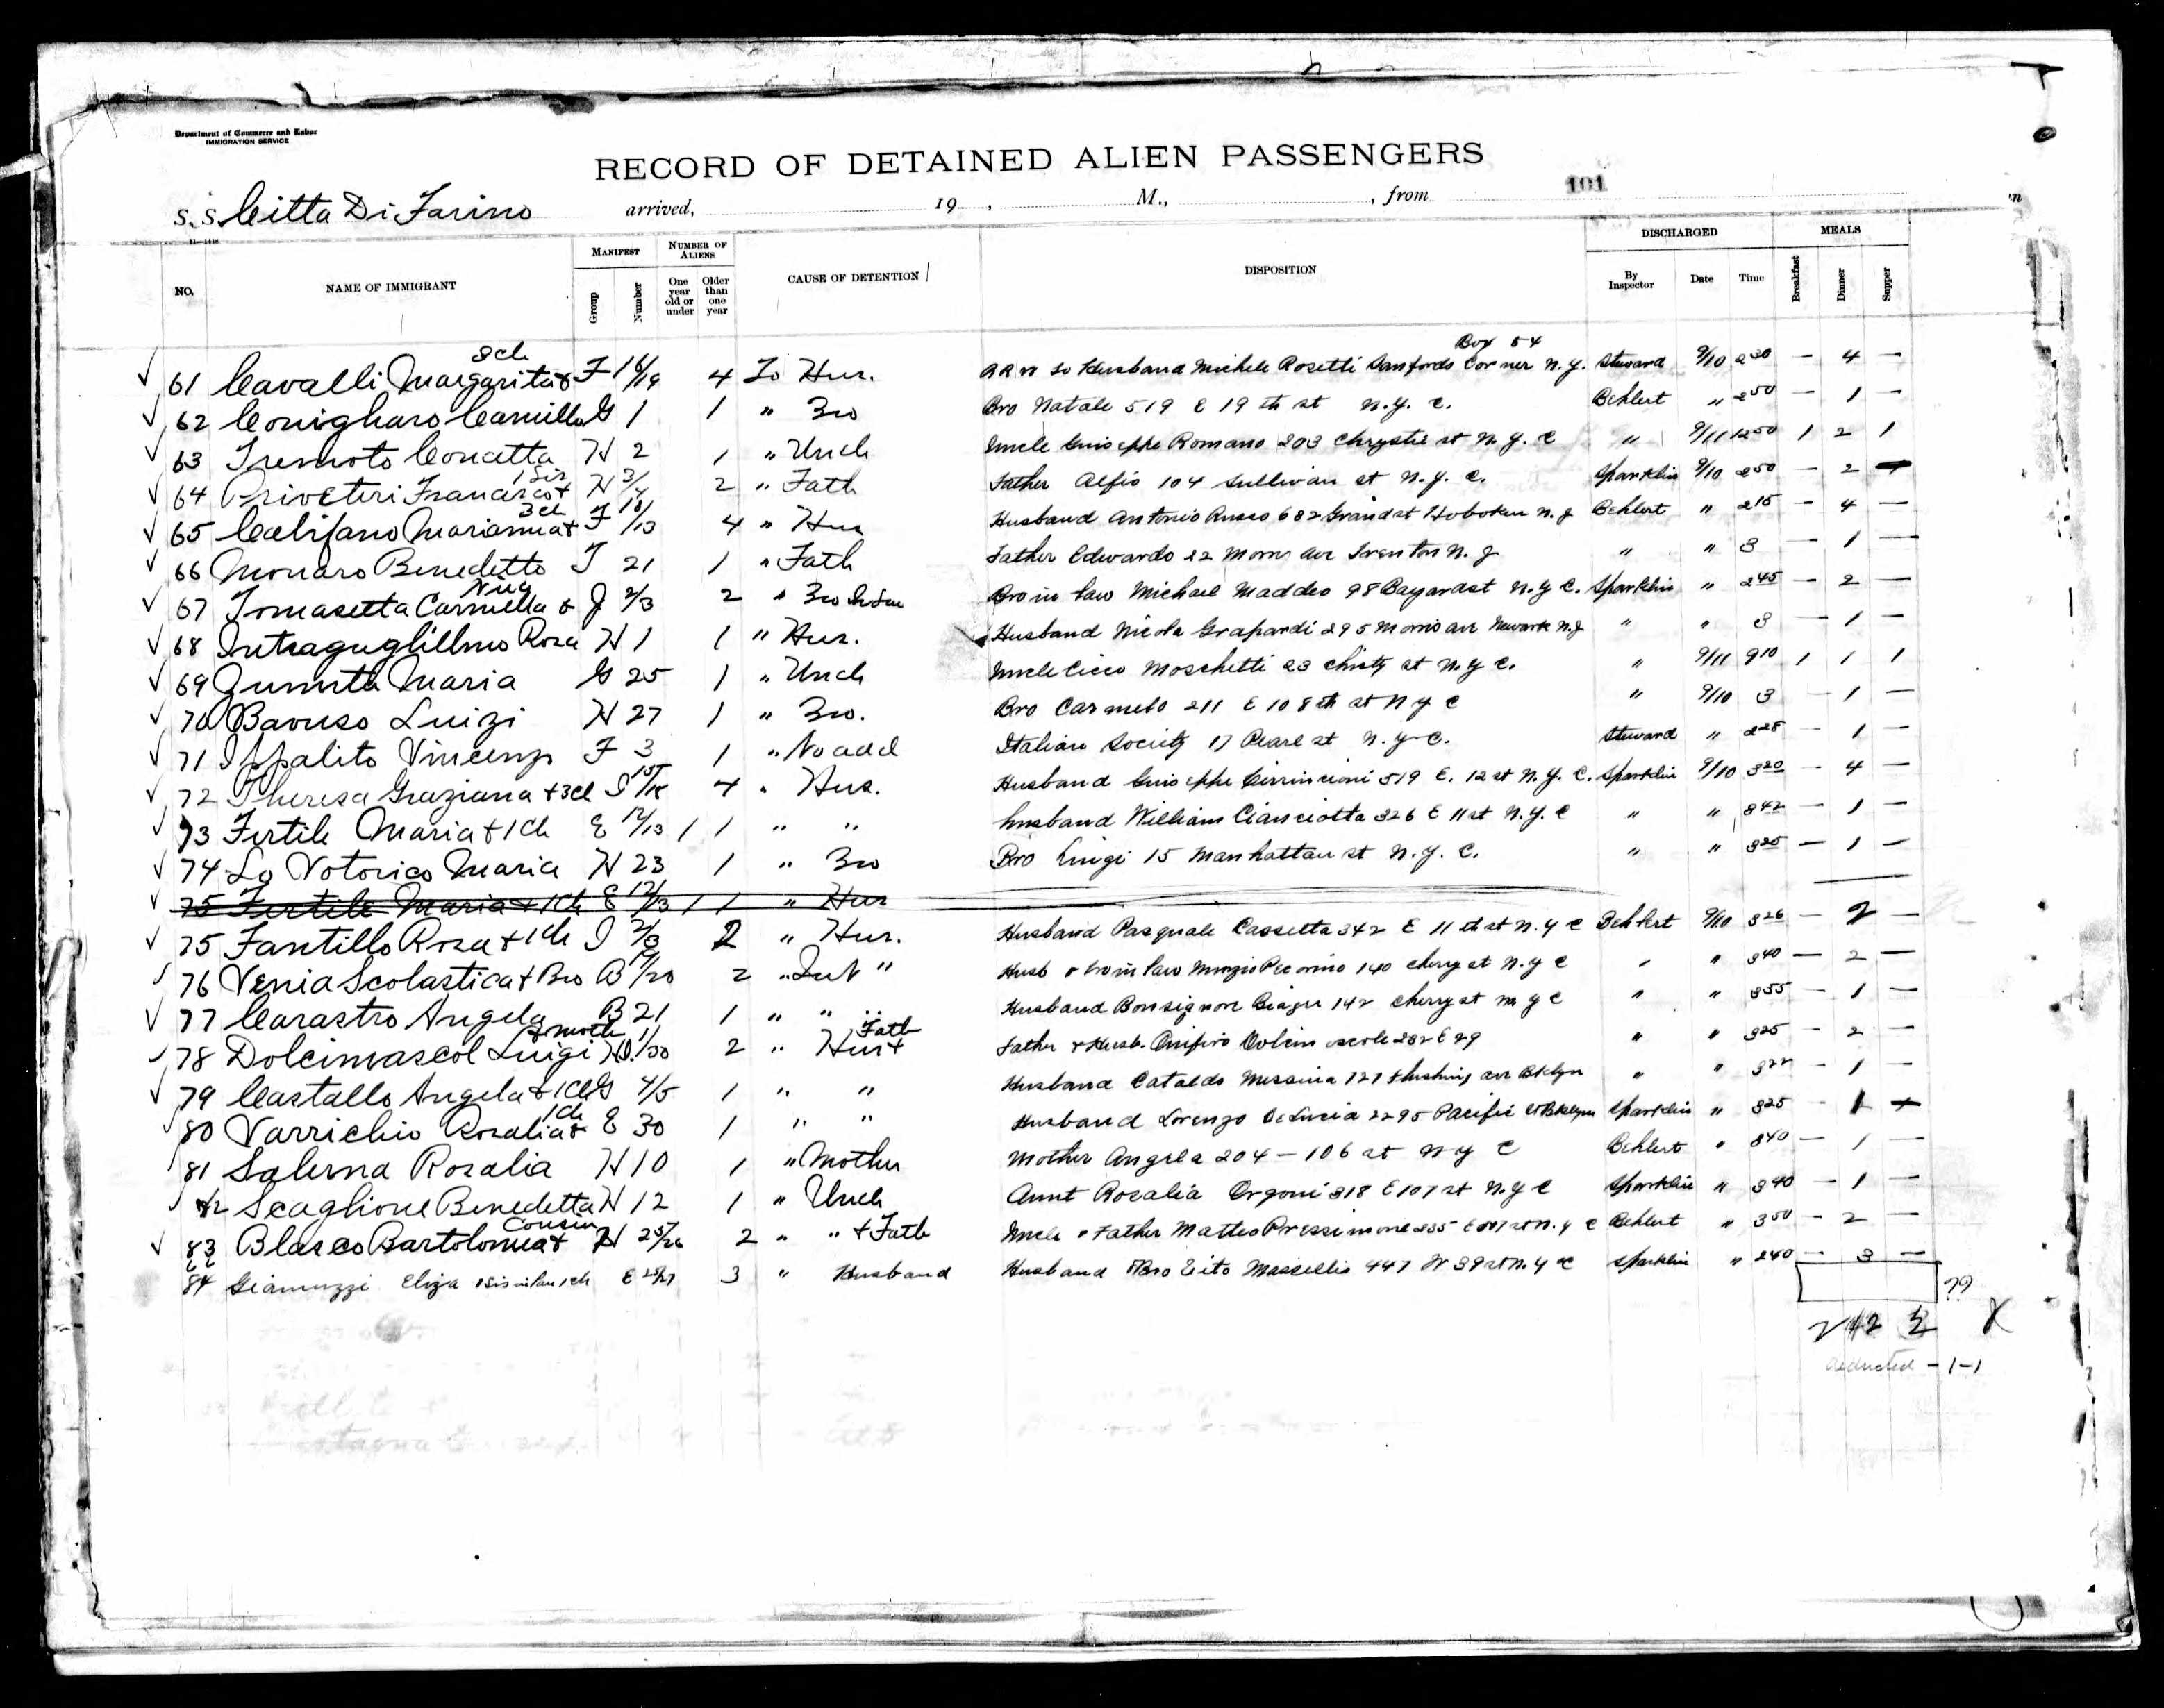 Department of Commerce and Labor
IMMIGRATION SERVICE
RECORD OF DETAINED ALIEN PASSENGERS
101
S.S. Citta Di Torino arrived, 19 , M., , from
11-1418
NO. NAME OF IMMIGRANT MANIFEST Group Number NUMBER OF ALIENS One year old or under Older than one year CAUSE OF DETENTION DISPOSITION DISCHARGED By Inspector Date Time MEALS Breakfast Dinner Supper
3 ch
Box 54
61 Cavalli Margarita & F 16/19 4 To Hus. to Husband Michele Rosetti Sanfords Corner N.Y. Steward 9/10 2 30 – 4 –
62 Conigliaro Camillo G 1 1 " Bro Bro Natale 519 E 19 th st N.Y. C. Behlert " 2 50 – 1 –
63 Tremoto Concetta H 2 1 " Uncle Uncle Guiseppe Romano 203 Chrystie st N.Y. C " 9/11 12 50 1 2 1
1 Sis
64 Priveteri Francisco & H 3/4 2 " Fath Father Alfio 104 Sullivan st N.Y. C. Sparklin 9/10 2 50 – 2
3 ch
65 Califano Marianna & F 10/13 4 " Hus Husband Antonio Russo 682 Grand st Hoboken N.J Behlert " 2 15 – 4 –
66 Monaro Benedetto I 21 1 " Fath Father Edwardo 22 Morris ave Trenton N.J " " 3 – 1 –
67 Tomasetta Carmella & J 2/3 2 " Bro in law Bro in law Michael Maddeo 98 Bayard st N.Y C. Sparklin " 2 45 – 2 –
68 Intraguglillmo Rosa H 1 1 " Hus. Husband Nicola Grapardi 295 Morris ave Newark N.J " " 3 – 1 –
69 Maria G 25 1 " Uncle Uncle Cicco Moschetti 23 st N.Y C. " 9/11 9 10 1 1 1
70 Bavuso Luizi H 27 1 " Bro. Bro Carmelo 211 E 108 th st N Y C " 9/10 3 – 1 –
71 Ippalito Vincenzo F 3 1 " No add Italian Society 17 Pearl st N.Y. C. Steward " 2 28 – 1 –
72 Theresa Graziana + 3 ch I 15/18 4 " Hus. Husband Guiseppe Cirrincioni 519 E. 12 st N.Y. C. Sparklin 9/10 3 20 – 4 –
73 Fertile Maria + 1 ch E 12/13 1 1 " " Husband William Cianciotta 326 E 11 st N.Y. C " " 3 42 – 1 –
74 Lo Votorico Maria H 23 1 " Bro Bro Luigi 15 Manhattan st N.Y. C. " " 3 25 – 1 –
75 Fertile Maria + 1 ch E 12/13 1 1 " Hus
75 Fantillo Rosa + 1 ch I 2/3 2 " Hus. Husband Pasquale Cassetta 342 E 11 th st N.Y C Behlert 9/10 3 26 – 2 –
76 Venia Scolastica + Bro B 2 " " Husb & bro in law Pecorino 140 Cherry st N.Y C " " 3 40 – 2 –
77 Carastro Angela B 21 1 " " " Husband Bonsignore Biagio 142 Cherry st N Y C " " 3 55 – 1 –
moth
Fath
78 Dolcimascol Luigi 2 " Hus + Father & Husb. Onifiro 232 E 29 " " 3 25 – 2 –
79 Castallo Angela & 1 ch G 4/5 1 " " Husband Cataldo Messina 727 Flushing ave Bklyn " " 3 22 – 1 –
1 ch
80 Varrichio Rosalia & E 30 1 " " Husband Lorenzo De Lucia 2295 Pacific st Bklyn Sparklin " 3 25 – 1
81 Salerna Rosalia H 10 1 " Mother Mother Angela 204 – 106 st N Y C Behlert " 3 40 – 1 –
82 Scaglione Benedetta H 12 1 " Uncle Aunt Rosalia Orgoni 318 E 107 st N.Y C Sparklin " 3 40 – 1 –
Cousin
83 Blasco Bartolomea & H 25/26 2 " " + Fath Uncle & Father Matteo Pressimone 235 E 107 st N.Y C Behlert " 3 50 – 2 –
84 Giannuzzi Eliza 1 sis in law 1 ch E 3 " Husband Husband & Bro Vito Mascellis 447 W 39 st N.Y C Sparklin " 2 40 – 3 –
??
2 42 X
deducted – 1–1